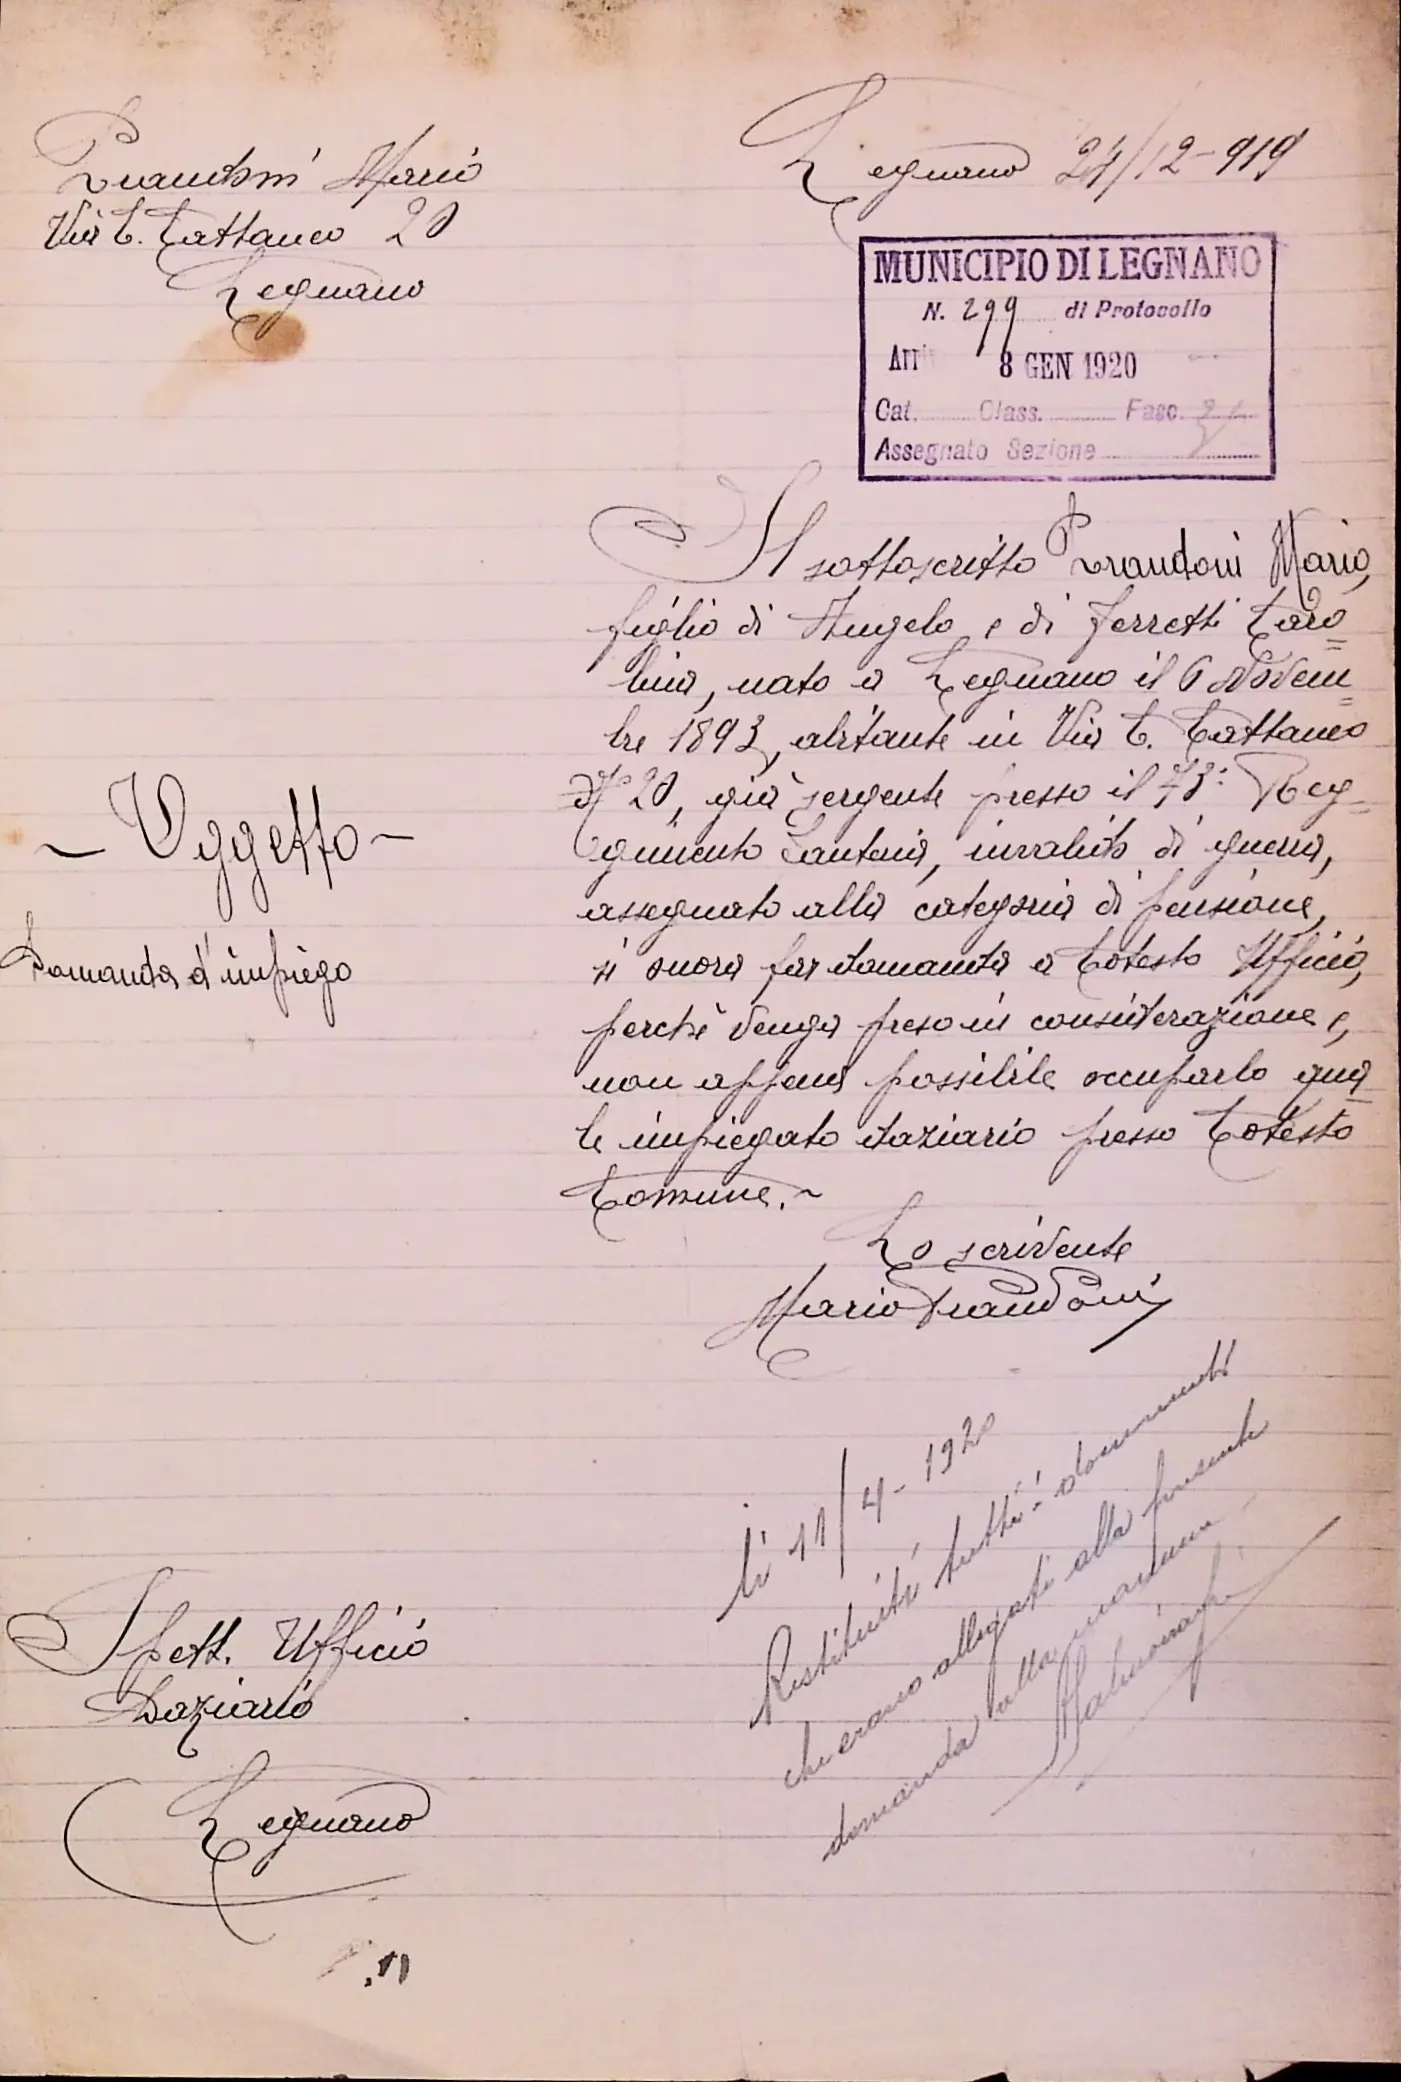 Prandoni Mario
Via C. Cattaneo 20
Legnano
Legnano 24/12-919
MUNICIPIO DI LEGNANO
N. 299 di Protocollo
Arr 8 GEN 1920
Cat. Class. Fasc.
Assegnato Sezione
Il sottoscritto Prandoni Mario,
figlio di Angelo e di Ferretti Caro=
lina, nato a Legnano il 6 Novem=
bre 1893, abitante in Via C. Cattaneo
N° 20, già sergente presso il 73° Reg-
gimento Fanteria, invalido di guerra,
assegnato alla categoria di pensione,
si onora far domanda a Codesto Ufficio,
perchè venga preso in considerazione e,
non appena possibile occuparlo qua
le impiegato daziario presso Codesto
Comune.~
Lo scrivente
Mario Prandoni
~ Oggetto ~
Domanda d'impiego
li 11/4-1920
Restituiti tutti i documenti
che erano allegati alla presente
domanda
Spett. Ufficio
Daziario
Legnano